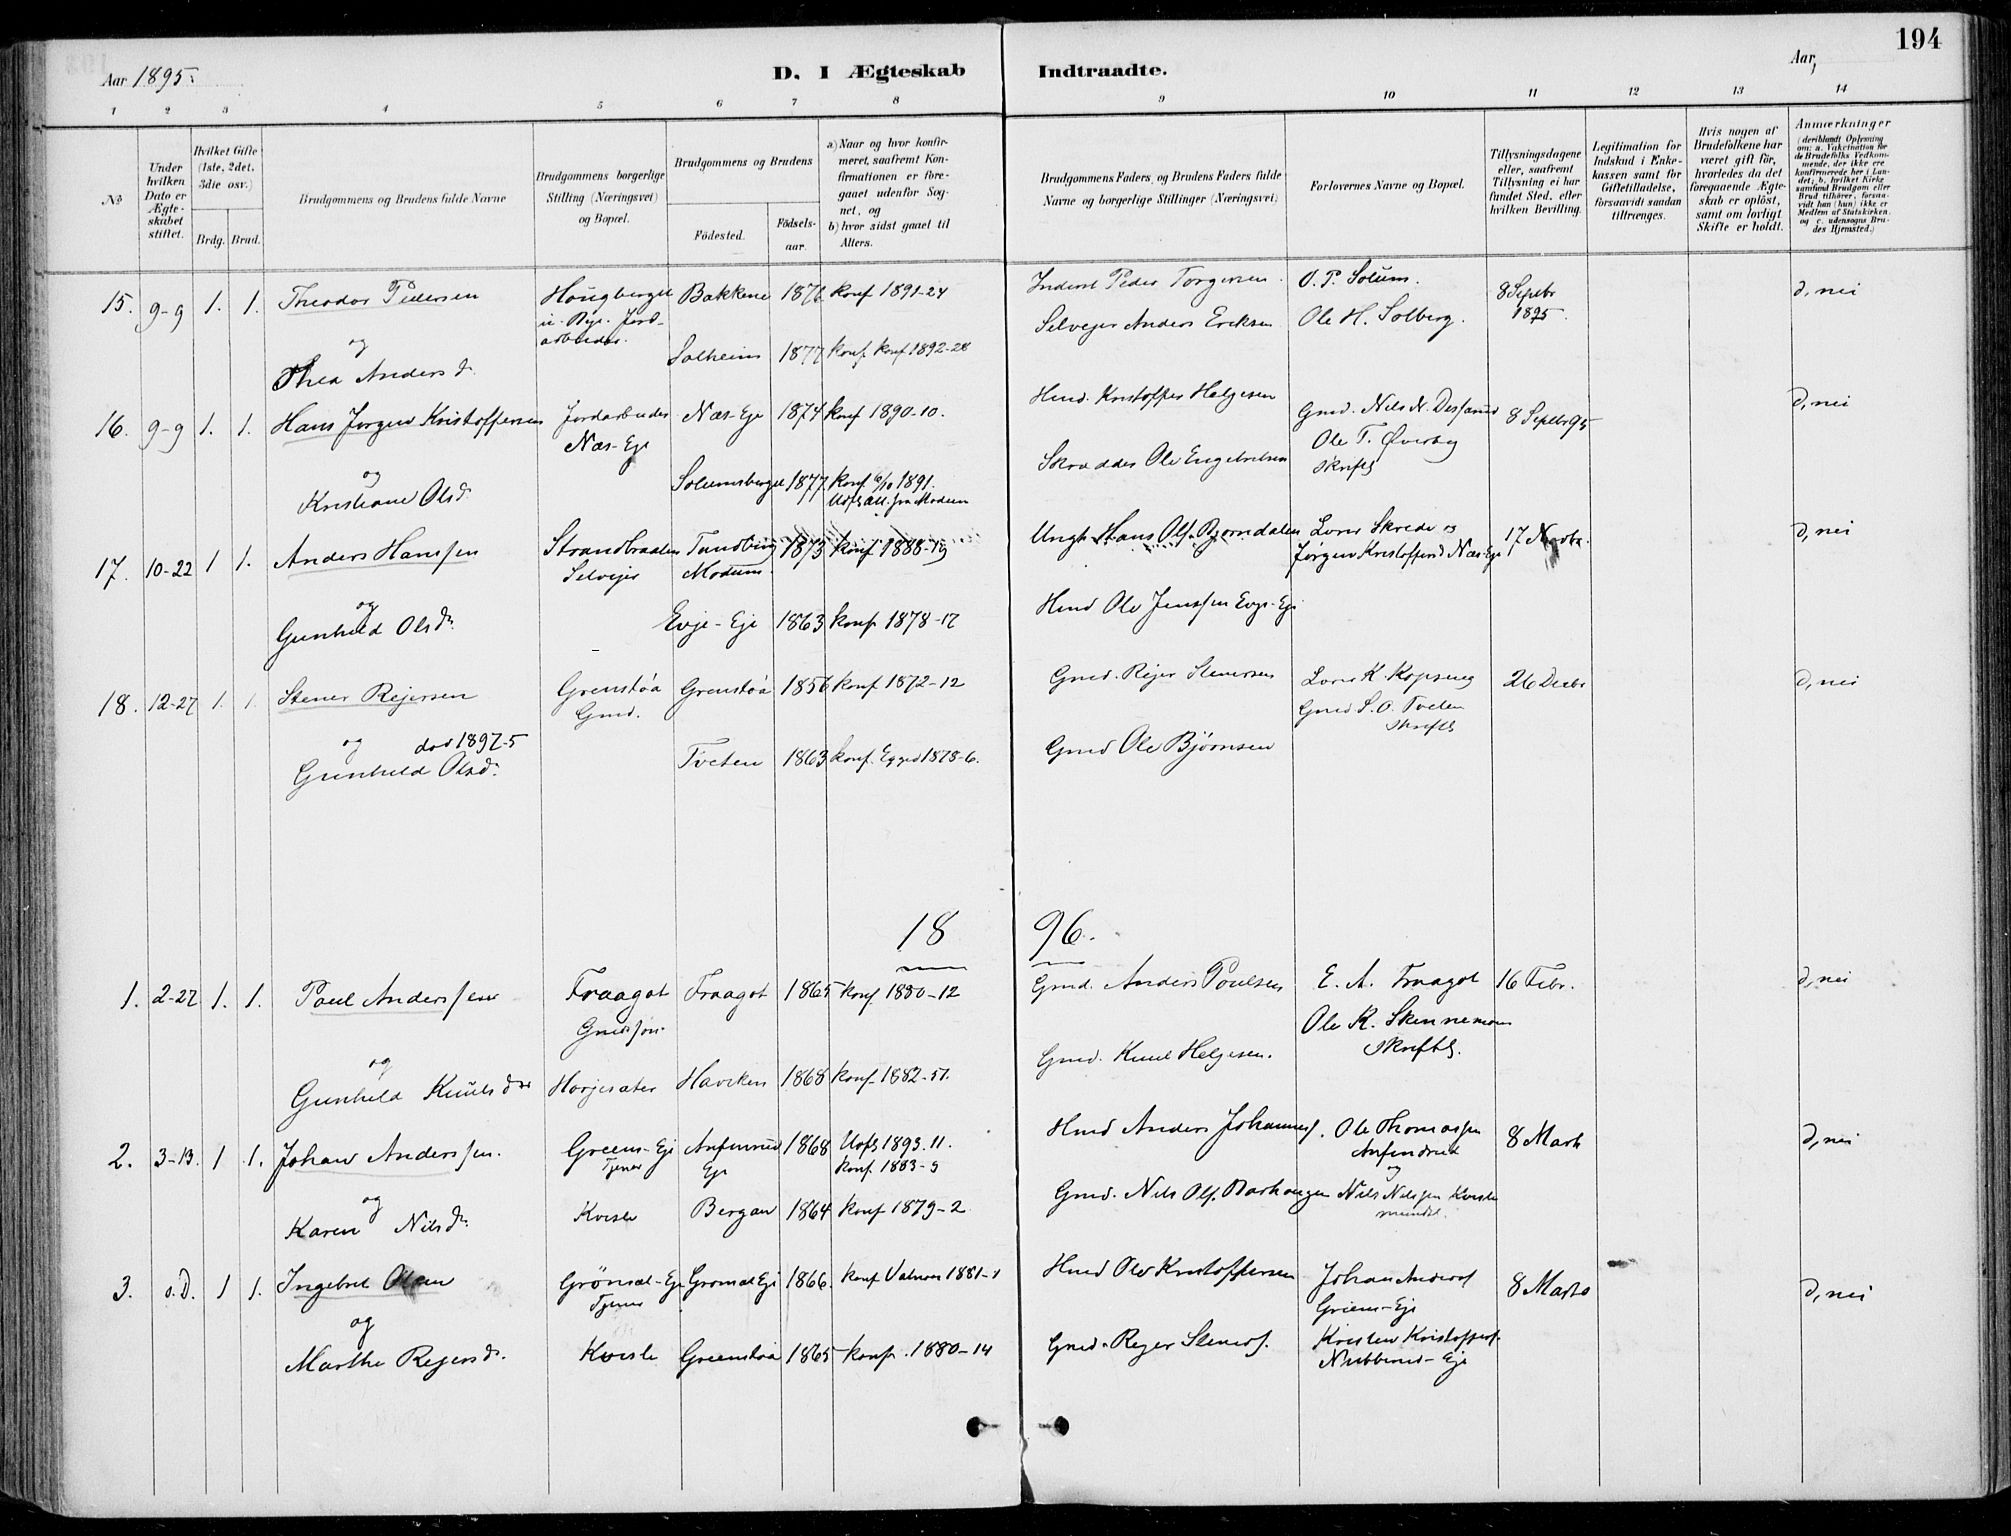 194
Aar 1895.
D. I Ægteskab Indtraadte.
Aar,
1 2 3 4 5 6 7 8 9 10 11 12 13 14
No
Under hvilken Dato er Ægteskabet stiftet.
Hvilket Gifte (1ste, 2det, 3die osv.)
Brdg. Brud.
Brudgommens og Brudens fulde Navne
Brudgommens borgerlige Stilling (Næringsvei) og Bopæl.
Brudgommens og Brudens
Fødested.
Fødselsaar.
a) Naar og hvor konfirmeret, saafremt Konfirmationen er foregaaet udenfor Sognet, og
b) hvor sidst gaaet til Alters.
Brudgommens Faders, og Brudens Faders fulde Navne og borgerlige Stillinger (Næringsvei)
Forlovernes Navne og Bopæl.
Tillysningsdagene eller, saafremt Tillysning ei har fundet Sted, efter hvilken Bevilling.
Legitimation for Indskud i Enkekassen samt for Giftetilladelse, forsaavidt saadan tiltrænges.
Hvis nogen af Brudefolkene har været gift før, hvorledes da det foregaaende Ægteskab er opløst, samt om lovligt Skifte er holdt.
Anmærkninger (deriblandt Oplysning om: a. Vakcination for de Brudefolks Vedkommende, der ikke ere konfirmerede her i Landet; b. hvilket Kirkesamfund Brudgom eller Brud tilhører, forsaavidt han (hun) ikke er Medlem af Statskirken. og c. udensogns Brudes Hjemsted.)
15. 9-9 1. 1. Theodor Pedersen Bakkene konf 1891-24 Inderst Peder Torgersen O. P. Solum. 8 Septbr 1895. d, nei
og
Thea Andersd. Solheim 1877 konf. konf 1892-28 Selvejer Anders Eriksen Ole H. Solberg.
16. 9-9 1. 1. Hans Jørgen Kristoffersen Jordarbeider Næs-Eje Næs-Eje 1874 konf 1890-10. Hmd. Kristoffer Helgesen Gmd. Nils N. 8 Septbr 95 d, nei
og
Kristiane Olsd. Solumsberget 1877 konf. 1891. Skrædder Ole Engebretsen Ole T. Øverby Skriftl
17. 10-22 1 1. Anders Hanssen Selvejer Modum. 1873 konf 1888-19 Ungk. Hans Ols. Bjørndalen Skrede og Jørgen Kristoffers. Næs-Eje 17 Novbr. d, nei
og
Gunhild Olsd. Evje-Eje 1863 konf 1878-17 Hmd Ole Jenssen
18. 12-27 1. 1. Stener Rejersen Grenstøa Gmd. Grenstøa 1856 konf 1872-12 Gmd. Rejer Stenersen 26 Decbr d, nei
og død 1897-5
Gunhild Olsd. Tveten 1863 konf. 1878-6. Gmd Ole Bjørnsen Gmd S. O. Tveten Skriftl
18 96.
1. 2-27 1. 1. Paul Anderssen Fraagot Gmdssøn. Fraagot 1865 konf 1880-12 Gmd. Anders Poulsen E. A. Fraagot 16 Febr. d, nei
og Ole K. Skriftl.
Gunhild Knutsd. 1868 konf. 1882-51. Gmd. Knut Helgesen.
2. 3-13. 1 1. Johan Anderssen. Tjener Eje 1868 1893. 11. konf. 1883-9 Hmd Anders Johannes. Ole Thomassen 8 Marts d, nei
og og
Karen Nilsd. Kvisle Bergan 1864 konf 1879-2. Gmd. Nils Ols. Nils Nilssen Kvisle mundtl.
3. s.D. 1 1. Ingebret Olsen Tjener 1866. konf 1881-1 Hmd Ole Kristoffersen Johan Anders. 8 Marts d, nei
og
Marthe Rejersd. Kvisle Greenstøa 1865 konf. 1880-14 Gmd. Rejer Steners. Kristen Kristoffers.